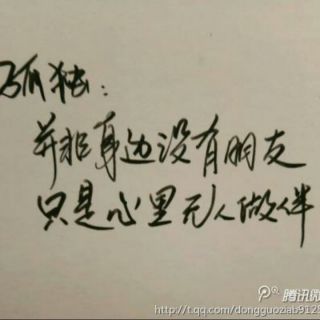 孤独：
并非身边没有朋友
只是心里无人做伴
腾讯微
http://t.qq.com/dongguoziab9125